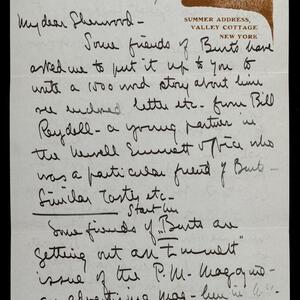 SUMMER ADDRESS,
VALLEY COTTAGE
NEW YORK
My dear Sherwood -
Some friends of Burts have
asked me to put it up to you to
write a 1000 word story about him
see enclosed letter etc - from Bill
a young partner in
the Newell Emmett office who
was a particular friend of Burts -
Similar Tastes etc -
Start in
Some friends of "Burts are
getting out an Emmett"
issue of the P.M. Magazine -
an advertising mag -